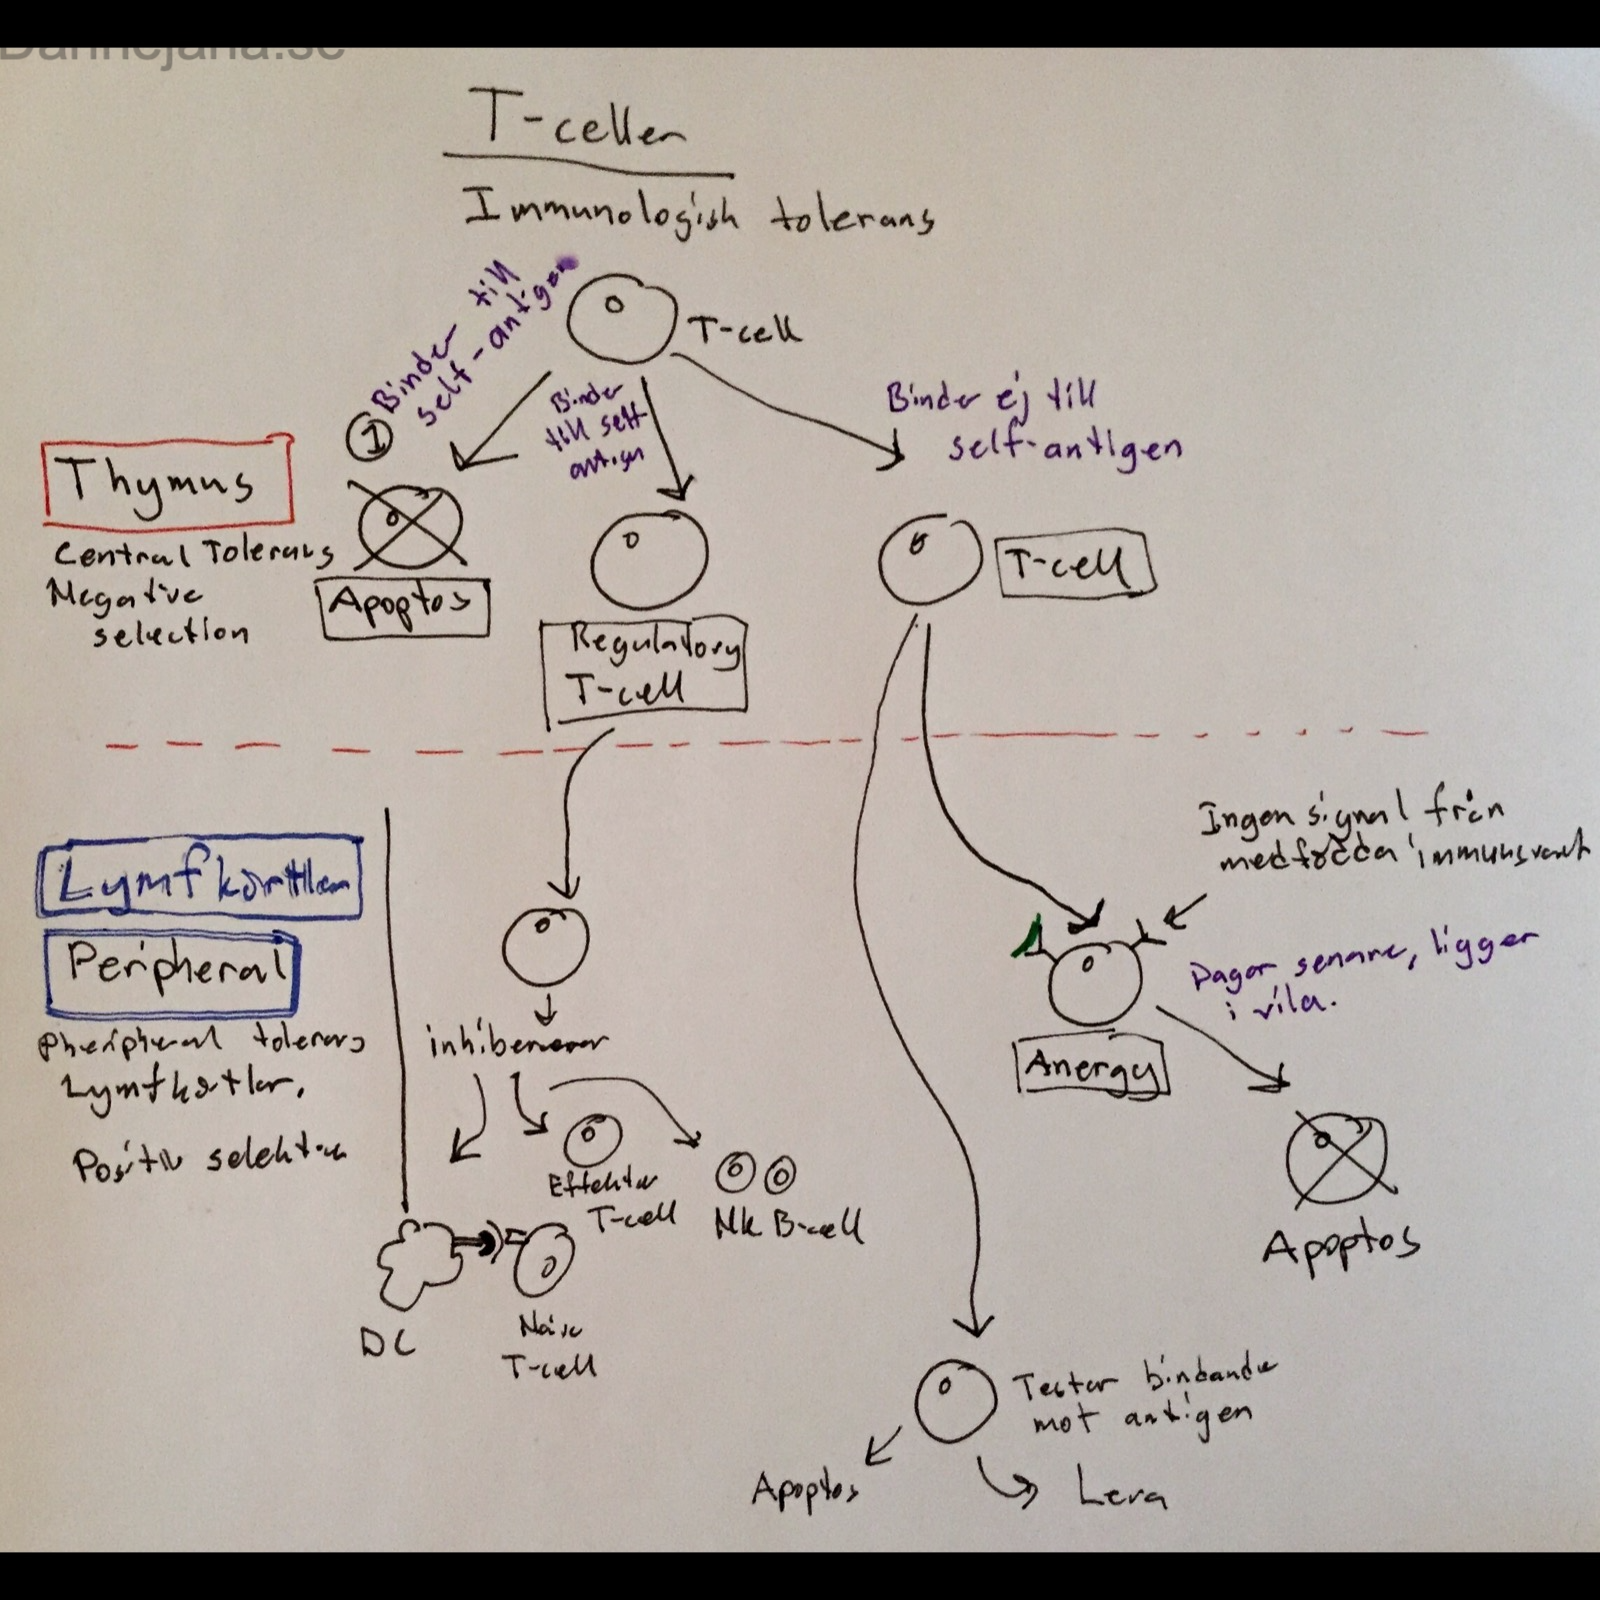 Dannejana.se
T-celler
Immunologish tolerans
T-cell
① Binder till
self-antigen
Binder
till self
antign
Binder ej till
self-antigen
Thymus
Central Tolerans
Negative
selection
Apoptos
Regulatory
T-cell
T-cell
Lymfkörtlar
Peripheral
Pheripheral tolerans
Lymfkörtlar.
Positiv selektion
inhiberar
Effektor
T-cell
NK B-cell
DC
Naive
T-cell
Ingen signal från
medfödda immunsvaret
Dagar senare, ligger
i vila.
Anergy
Apoptos
Testar bindande
mot antigen
Apoptos
Leva